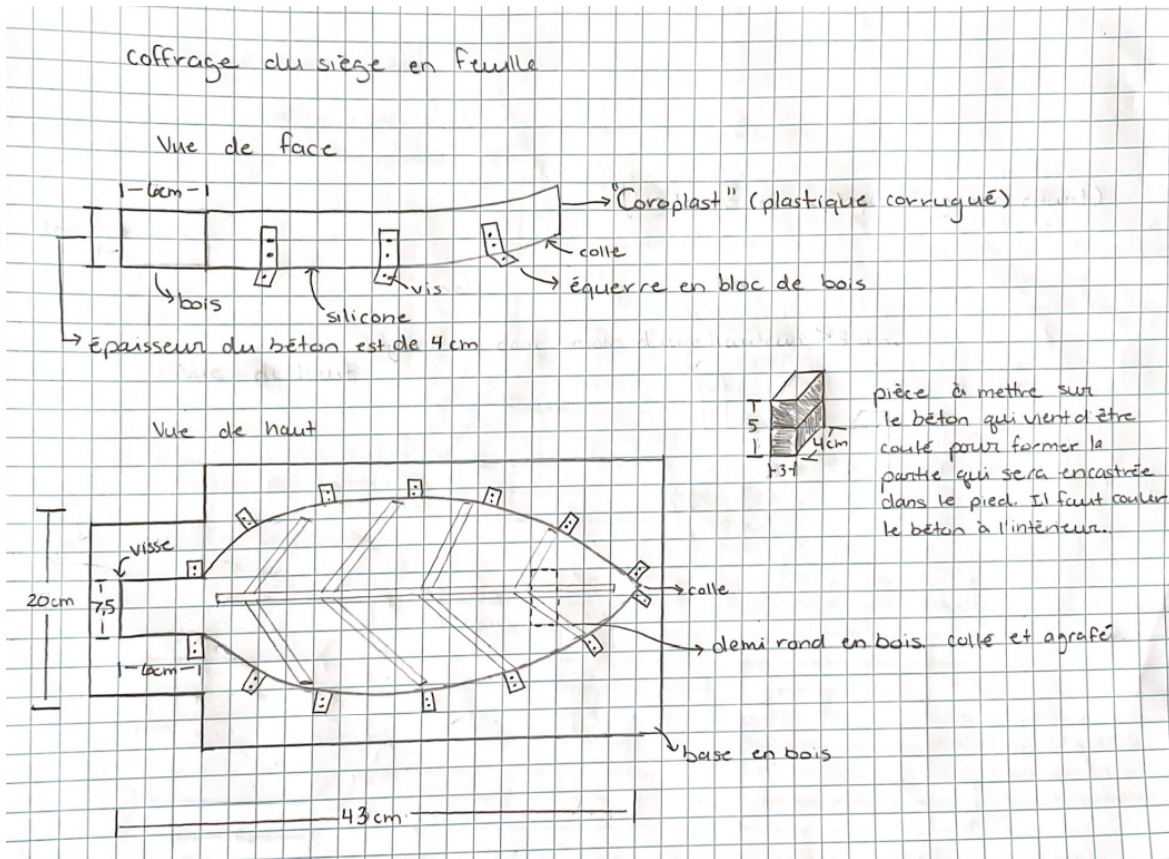 coffrage du siège en feuille
Vue de face
6cm
"Coroplast" (plastique corrugué)
colle
vis
équerre en bloc de bois
bois
silicone
épaisseur du béton est de 4 cm
Vue de haut
5
4cm
3
pièce à mettre sur
le béton qui vient d'être
coulé pour former la
partie qui sera encastrée
dans le pied. Il faut couler
le béton à l'intérieur.
visse
20cm
7,5
6cm
colle
demi rond en bois collé et agrafé
base en bois
43 cm